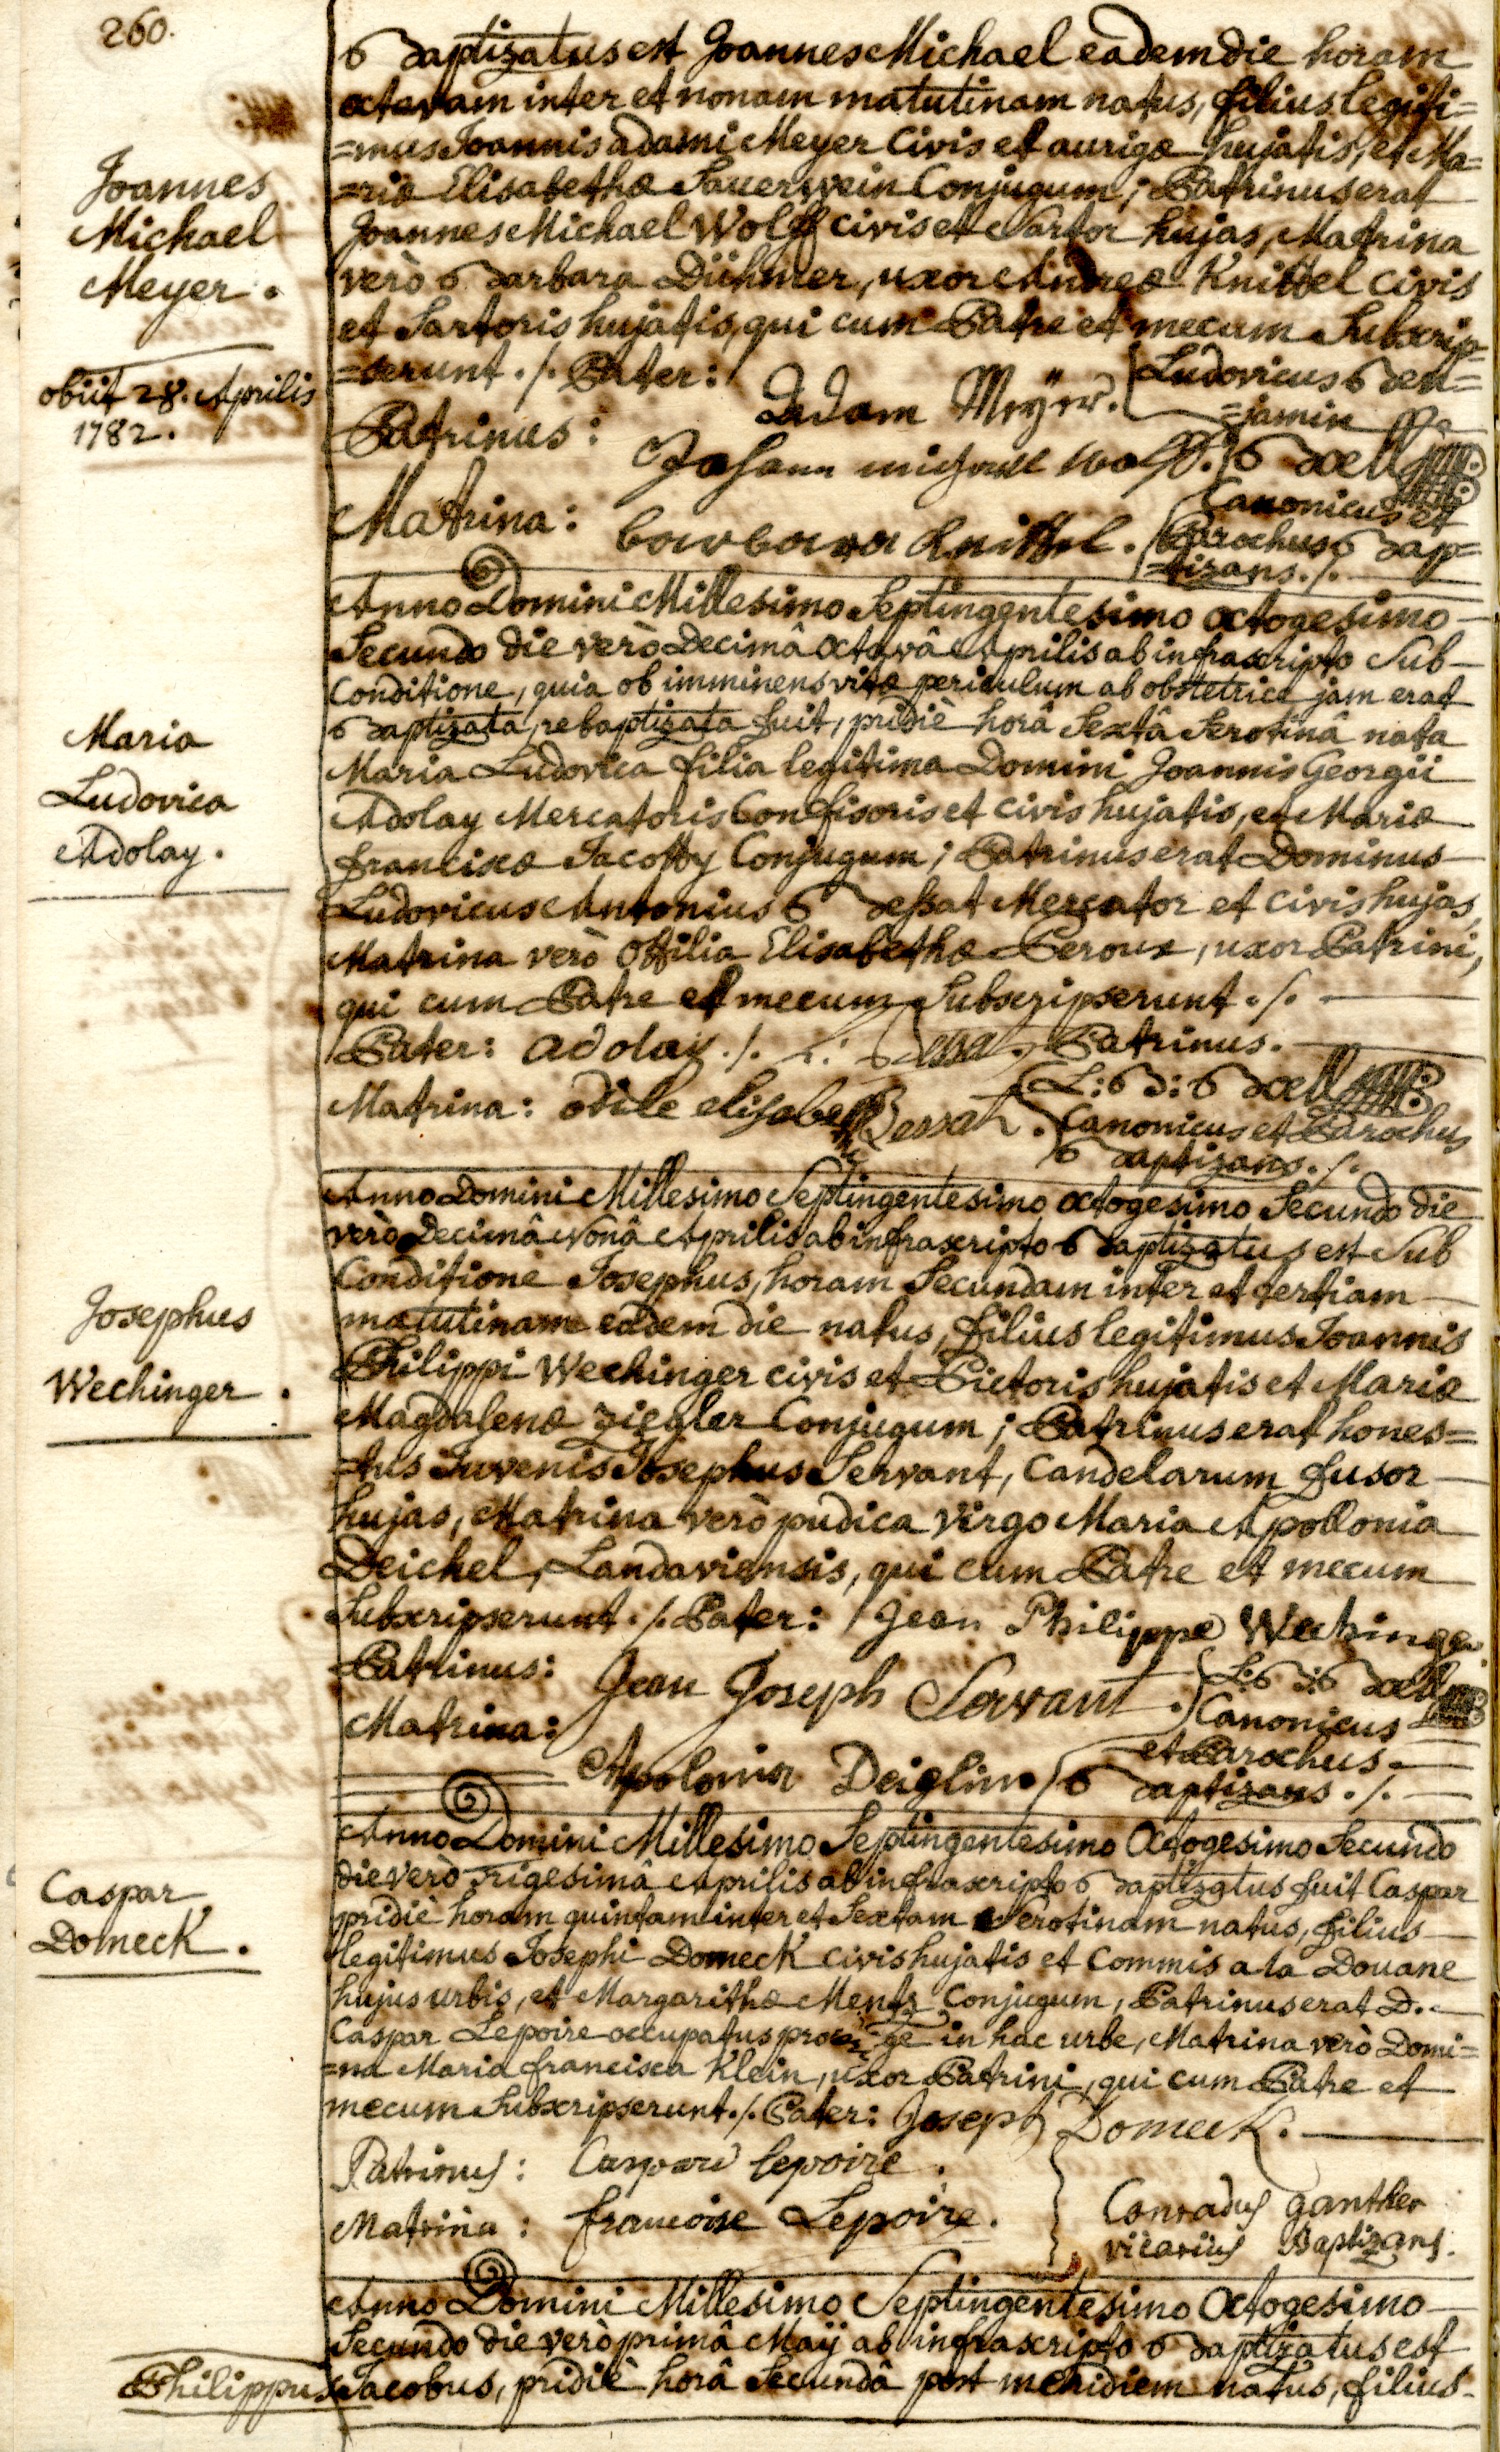 260.
Baptizatus est Joannes Michael eadem die horam
octavam inter et nonam matutinam natus, filius legiti=
=mus Joannis adami Meyer Civis et aurigæ hujatis, et Ma=
=riæ Elisabethæ Sauerwein Conjugum; Patrinus erat
Joannes Michael Wolff civis et Sartor hujas, Matrina
verò Barbara Dühmer, uxor Andreæ Knittel civis
et Sartoris hujatis, qui cum Patre et mecum Subscrip=
=serunt ./. Pater: Adam Meÿer.
Patrinus: Johann michael wolff.
Matrina: barbara Knittel.
Ludovicus Ben=
=jamin
Boell
Canonicus et
Parochus Bap=
=tizans ./.
Joannes
Michael
Meyer.
obiit 28. Aprilis
1782.
Anno Domini Millesimo Septingentesimo octogesimo
Secundo die verò Decimâ Octavâ Aprilis ab infrascripto Sub
Conditione, quia ob imminens vitæ periculum ab obstetrice jam erat
Baptizata, rebaptizata fuit, pridiè horâ Sextâ Serotinâ nata
Maria Ludovica filia legitima Domini Joannis Georgii
Adolay Mercatoris Confisoris et civis hujatis, et Mariæ
franciscæ Jacoby Conjugum; Patrinus erat Dominus
Ludovicus Antonius Bessat Mercator et civis hujas,
Matrina verò Ottilia Elisabethæ Peroux, uxor Patrini,
qui cum Patre et mecum Subscripserunt ./.
Pater: adolay ./. Bessat. Patrinus.
Matrina: odile elisabeth Bessat.
L: B: Boell
Canonicus et Parochus
Baptizans ./.
Maria
Ludovica
Adolay.
Anno Domini Millesimo Septingentesimo octogesimo Secundo die
verò Decimâ Nonâ Aprilis ab infrascripto Baptizatus est Sub
Conditione Josephus, horam Secundam inter et tertiam
matutinam eadem die natus, filius legitimus Joannis
Philippi Wechinger civis et Pictoris hujatis et Mariæ
Magdalenæ Ziegler Conjugum; Patrinus erat hones=
=tus Juvenis Josephus Servant, Candelarum fusor
hujas, Matrina verò pudica Virgo Maria Apollonia
Deichel, Landaviensis, qui cum Patre et mecum
Subscripserunt ./. Pater: Jean Philippe Wechinger
Patrinus: Jean Joseph Servant.
Matrina: Apolonia Deiglin
L: B: Boell
Canonicus
et Parochus
Baptizans ./.
Josephus
Wechinger.
Anno Domini Millesimo Septingentesimo Octogesimo Secundo
die verò Trigesimâ Aprilis ab infrascripto Baptizatus fuit Caspar
pridiè horam quintam inter et Sextam Serotinam natus, filius
legitimus Josephi Domeck civis hujatis et Commis a la Douane
hujus urbis, et Margarithæ Mentz Conjugum, Patrinus erat D.
Caspar Lepoire occupatus pro rege in hac urbe, Matrina verò Domi=
=na Maria francisca Klein, uxor Patrini, qui cum Patre et
mecum Subscripserunt ./. Pater: Joseph Domeck.
Patrinus: Caspard lepoire.
Matrina: francoise Lepoire.
Conradus Ganther
vicarius Baptizans.
Caspar
Domeck.
Anno Domini Millesimo Septingentesimo Octogesimo
Secundo die verò primâ Maÿ ab infrascripto Baptizatus est
Philippus Jacobus, pridiè horâ Secundâ post meridiem natus, filius